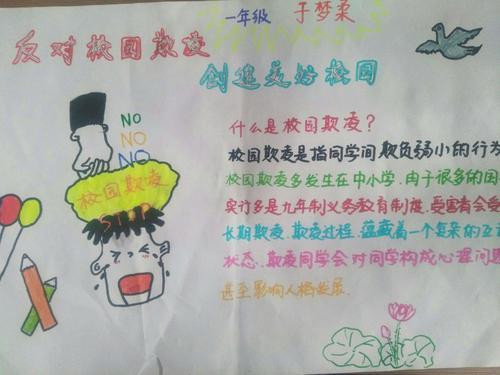 一年级 于梦柔
反对校园欺凌
创造美好校园
NO
NO
NO
校园欺凌
STOP
什么是校园欺凌？
校园欺凌是指同学间欺负弱小的行为
校园欺凌多发生在中小学.由于很多的国
实行多是九年制义务教育制度.受害者会受
长期欺凌.欺凌过程.蕴藏着一个复杂的互
状态.欺凌同学会对同学构成心理问题
甚至影响人格发展.